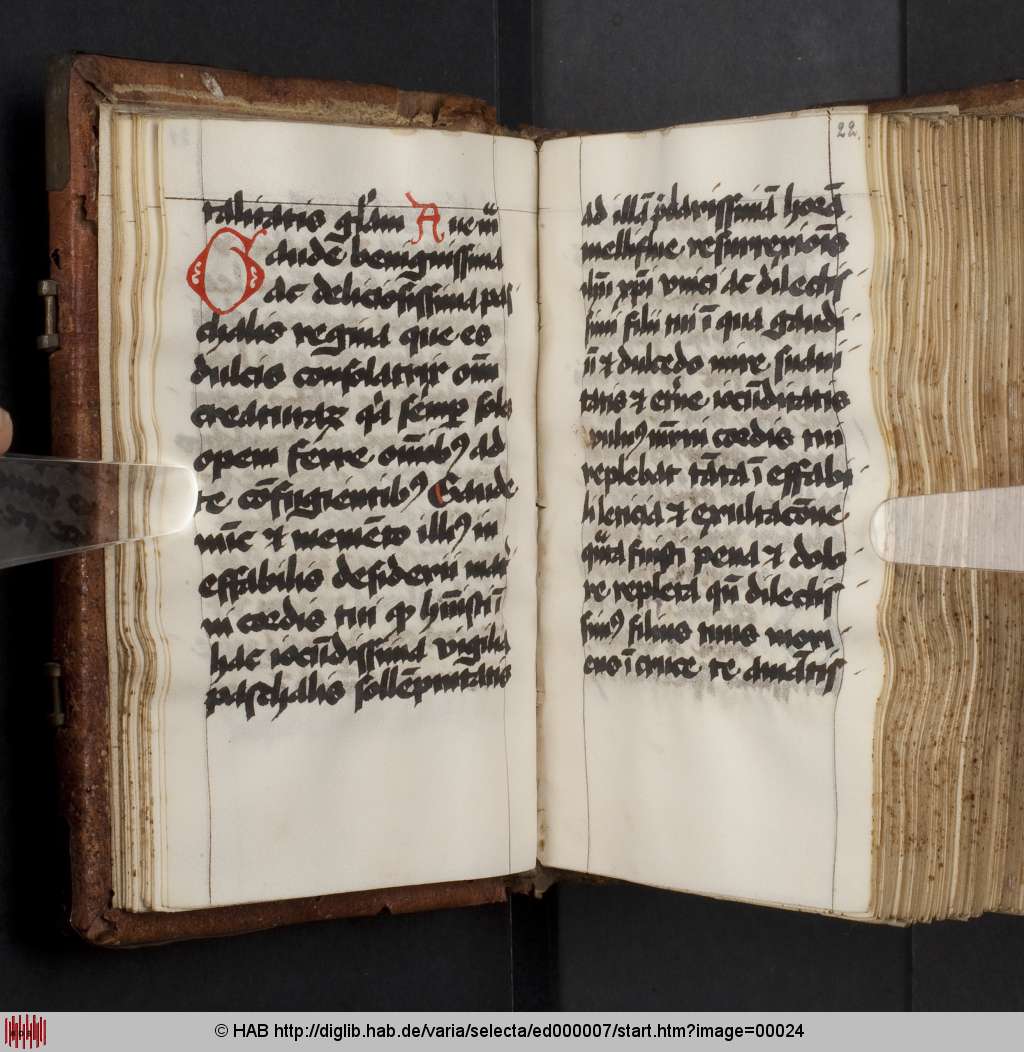 talitatis glam Aue m
Gaude benignissima
ac deliciosissima pas
chalis regina que es
dulcis consolatrix om
creaturaꝝ q semp solo
opem ferre omibꝰ ad
te cofugientibꝰ Gaude
nuc et memeto illꝰ in
effabilis desiderii
cordis tui
hac iocudissima vigilia
paschalis sollepnitatis
22.
ad illa pclarissima hora
melliflue resurrexionis
xpi vnici ac dilectis
simi filii tui i qua gaudi
u et dulcedo mire suaui
tatis et eterne iocuditatis
cordis tui
replebat tata i effabi
et exultacone
quata fuisti pena et dolo
re repleta qn dilectis
simꝰ filius tuus mori
ens i cruce te amatis
© HAB http://diglib.hab.de/varia/selecta/ed000007/start.htm?image=00024